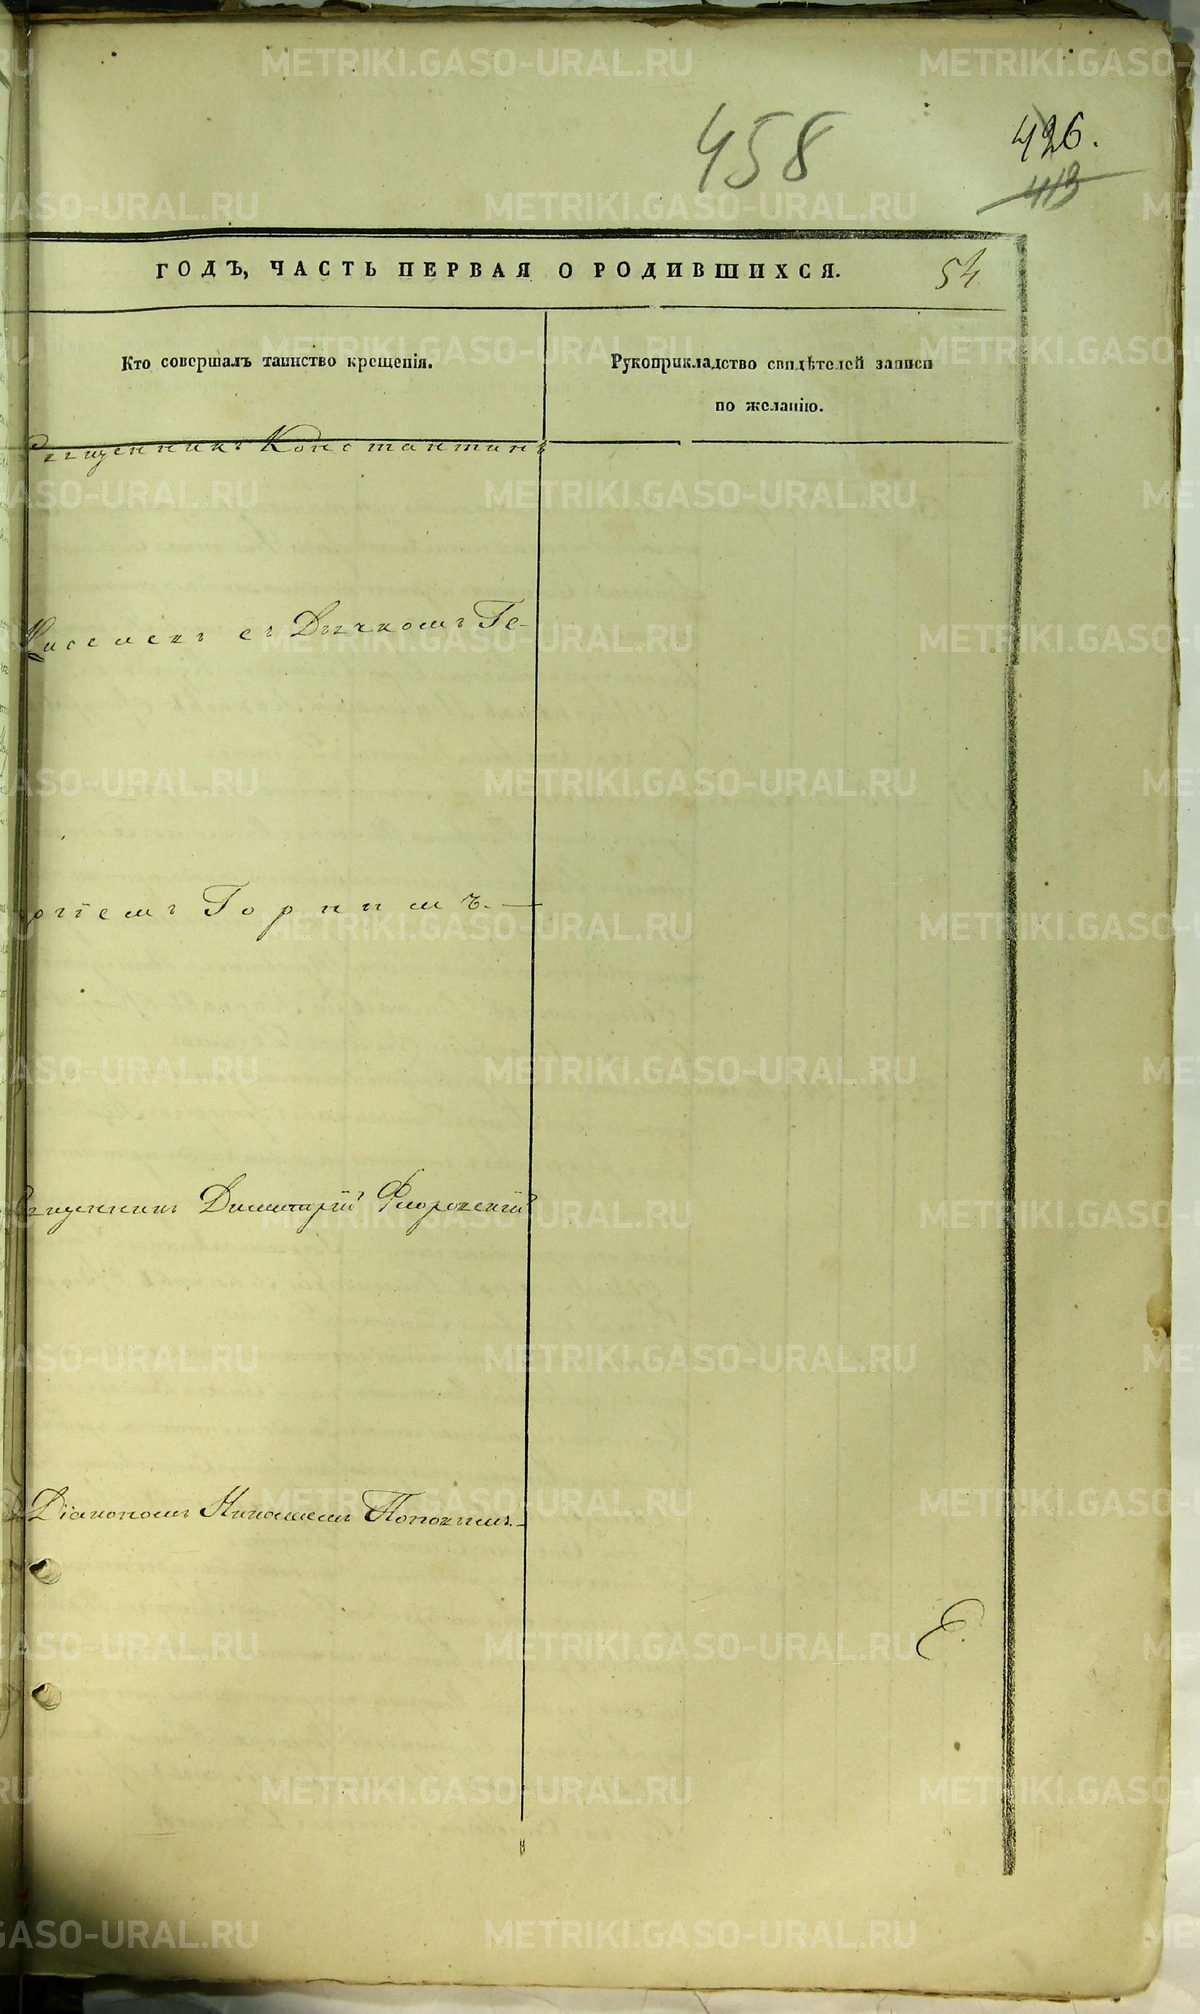 458
426.
413
ГОДЪ, ЧАСТЬ ПЕРВАЯ О РОДИВШИХСЯ.
54
Кто совершалъ таинство крещенія.
Рукоприкладство свидѣтелей записи
по желанію.
Священникъ Константинъ
съ Дьячкомъ Ге-
оргіемъ Горнымъ.
Священникъ Димитрій Флоровскій
Діакономъ Николаемъ Поповымъ.
METRIKI.GASO-URAL.RU